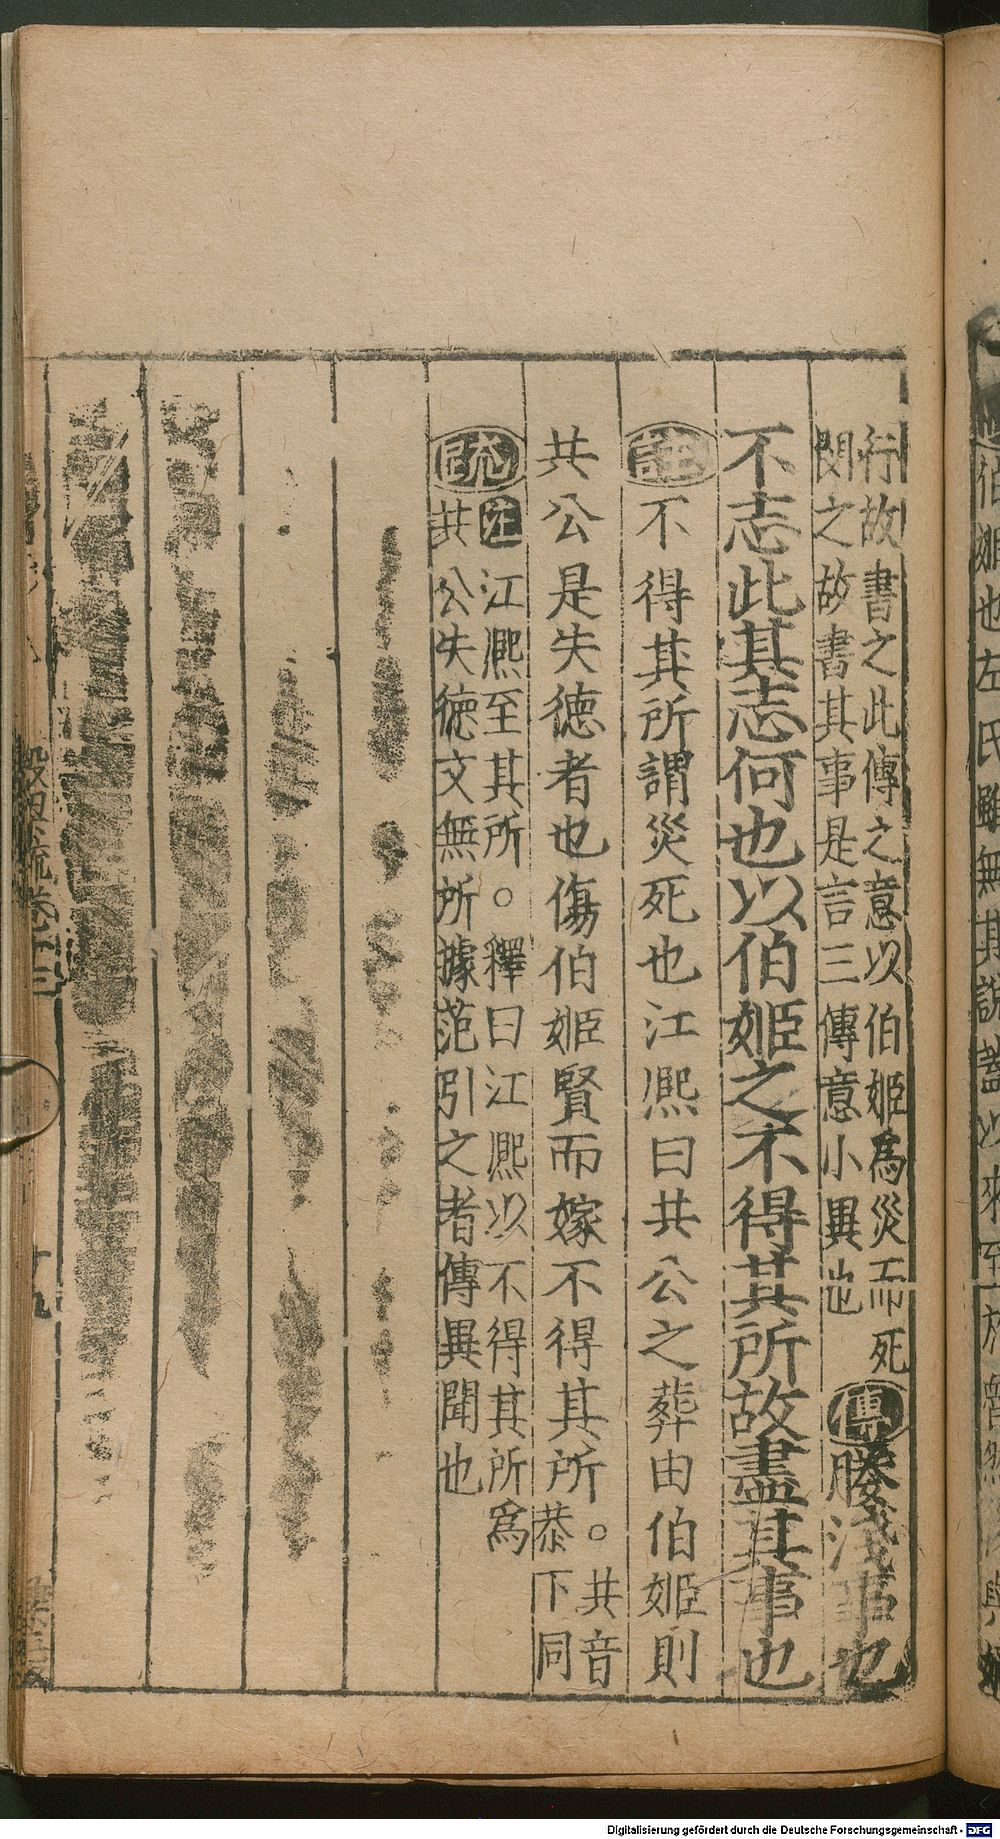 行故書之此傳之意以伯姬爲災而死
閔之故書其事是言三傳意小異也
傳媵淺事也
不志此其志何也以伯姬之不得其所故盡其事也
註不得其所謂災死也江熙曰共公之葬由伯姬則
共公是失德者也傷伯姬賢而嫁不得其所。共音
恭下同
疏注江熙至其所。釋曰江熙以不得其所爲
共公失德文無所據范引之者傳異聞也
穀梁疏卷十三
十九
伯姬也左氏雖無其說蓋以來至於
Digitalisierung gefördert durch die Deutsche Forschungsgemeinschaft - DFG